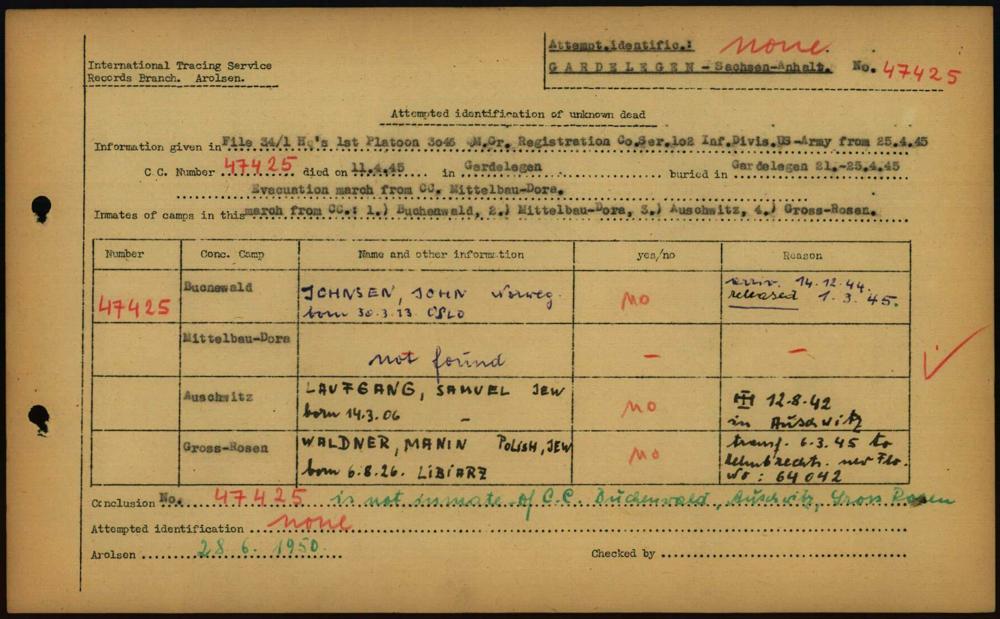 Attempt.identific.: none.
International Tracing Service
Records Branch. Arolsen.
GARDELEGEN - Sachsen-Anhalt. No. 47425
Attempted identification of unknown dead
Information given in File 34/1 Hq's 1st Platoon 3046 QM.Gr. Registration Co.Ser.102 Inf.Divis.US-Army from 25.4.45
C.C. Number 47425 died on 11.4.45 in Gardelegen buried in Gardelegen 21.-25.4.45
Evacuation march from CC. Mittelbau-Dora.
Inmates of camps in this march from CC.: 1.) Buchenwald, 2.) Mittelbau-Dora, 3.) Auschwitz, 4.) Gross-Rosen.
Number Conc. Camp Name and other information yes/no Reason
47425 Buchewald JOHNSEN, JOHN Norweg. born 30.3.13 OSLO no arriv. 14.12.44. released 1.3.45.
Mittelbau-Dora not found - -
Auschwitz LAUFGANG, SAMUEL JEW born 14.3.06 - no 12.8.42 in Auschwitz
Gross-Rosen WALDNER, MANIN POLISH, JEW born 6.8.26. LIBIARZ no transf. 6.3.45 to Helmbrechts. new Flo. No: 64042
Conclusion No. 47425 is not inmate of C.C. Buchenwald, Auschwitz, Gross Rosen
Attempted identification none
Arolsen 28.6.1950. Checked by